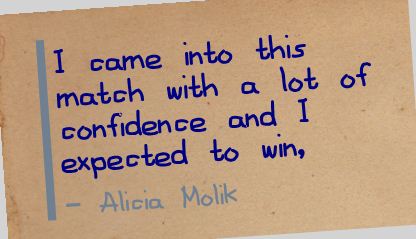 I came into this
match with a lot of
confidence and I
expected to win,
– Alicia Molik